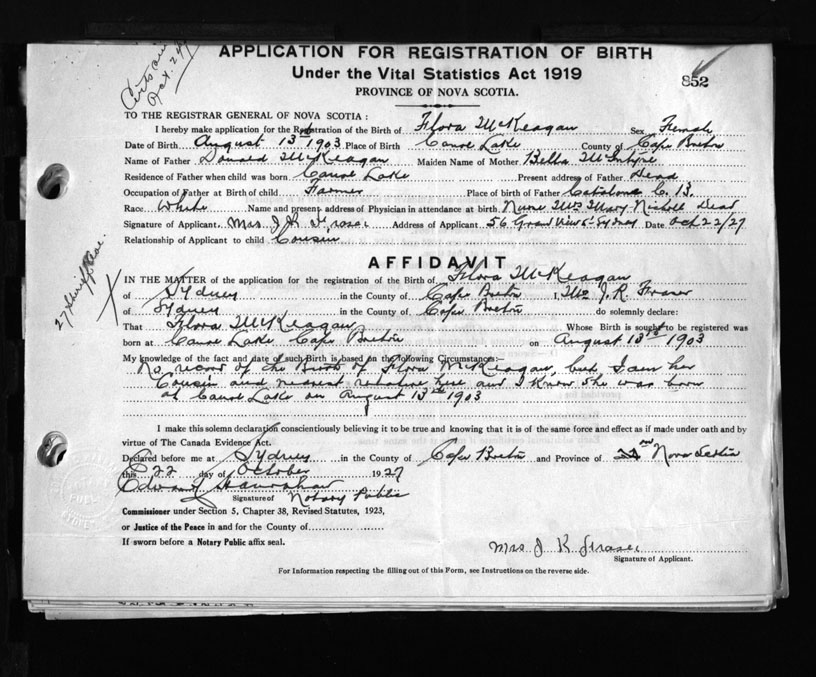 APPLICATION FOR REGISTRATION OF BIRTH
Under the Vital Statistics Act 1919
852
PROVINCE OF NOVA SCOTIA.
TO THE REGISTRAR GENERAL OF NOVA SCOTIA :
I hereby make application for the Registration of the Birth of Flora McKeagan Sex Female
Date of Birth August 13th 1903 Place of Birth Canoe Lake County of Cape Breton
Name of Father Donald McKeagan Maiden Name of Mother Bella McIntyre
Residence of Father when child was born Canoe Lake Present address of Father Dead
Occupation of Father at Birth of child Farmer Place of birth of Father Catalone C. B.
Race White Name and present address of Physician in attendance at birth Nurse Mrs Mary Nicholl Dead
Signature of Applicant Mrs J K Fraser Address of Applicant 56 Grand View St Sydney Date Oct 22/27
Relationship of Applicant to child Cousin
AFFIDAVIT
IN THE MATTER of the application for the registration of the Birth of Flora McKeagan
of Sydney in the County of Cape Breton I, Mrs J. R. Fraser
of Sydney in the County of Cape Breton do solemnly declare:
That Flora McKeagan Whose Birth is sought to be registered was
born at Canoe Lake Cape Breton on August 13th 1903
My knowledge of the fact and date of such Birth is based on the following Circumstances:—
No record of the Birth of Flora McKeagan, but I am her
Cousin and nearest relative here and I know she was born
at Canoe Lake on August 13th 1903
I make this solemn declaration conscientiously believing it to be true and knowing that it is of the same force and effect as if made under oath and by
virtue of The Canada Evidence Act.
Declared before me at Sydney in the County of Cape Breton and Province of Nova Scotia
this 22 day of October 1927
Signature of Notary Public
Commissioner under Section 5, Chapter 38, Revised Statutes, 1923,
or Justice of the Peace in and for the County of
If sworn before a Notary Public affix seal.
Mrs J K Fraser
Signature of Applicant.
For Information respecting the filling out of this Form, see Instructions on the reverse side.